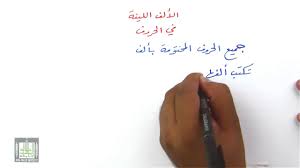 الألف اللينة
في الحروف
جميع الحروف المختومة بألف
تكتب ألفا